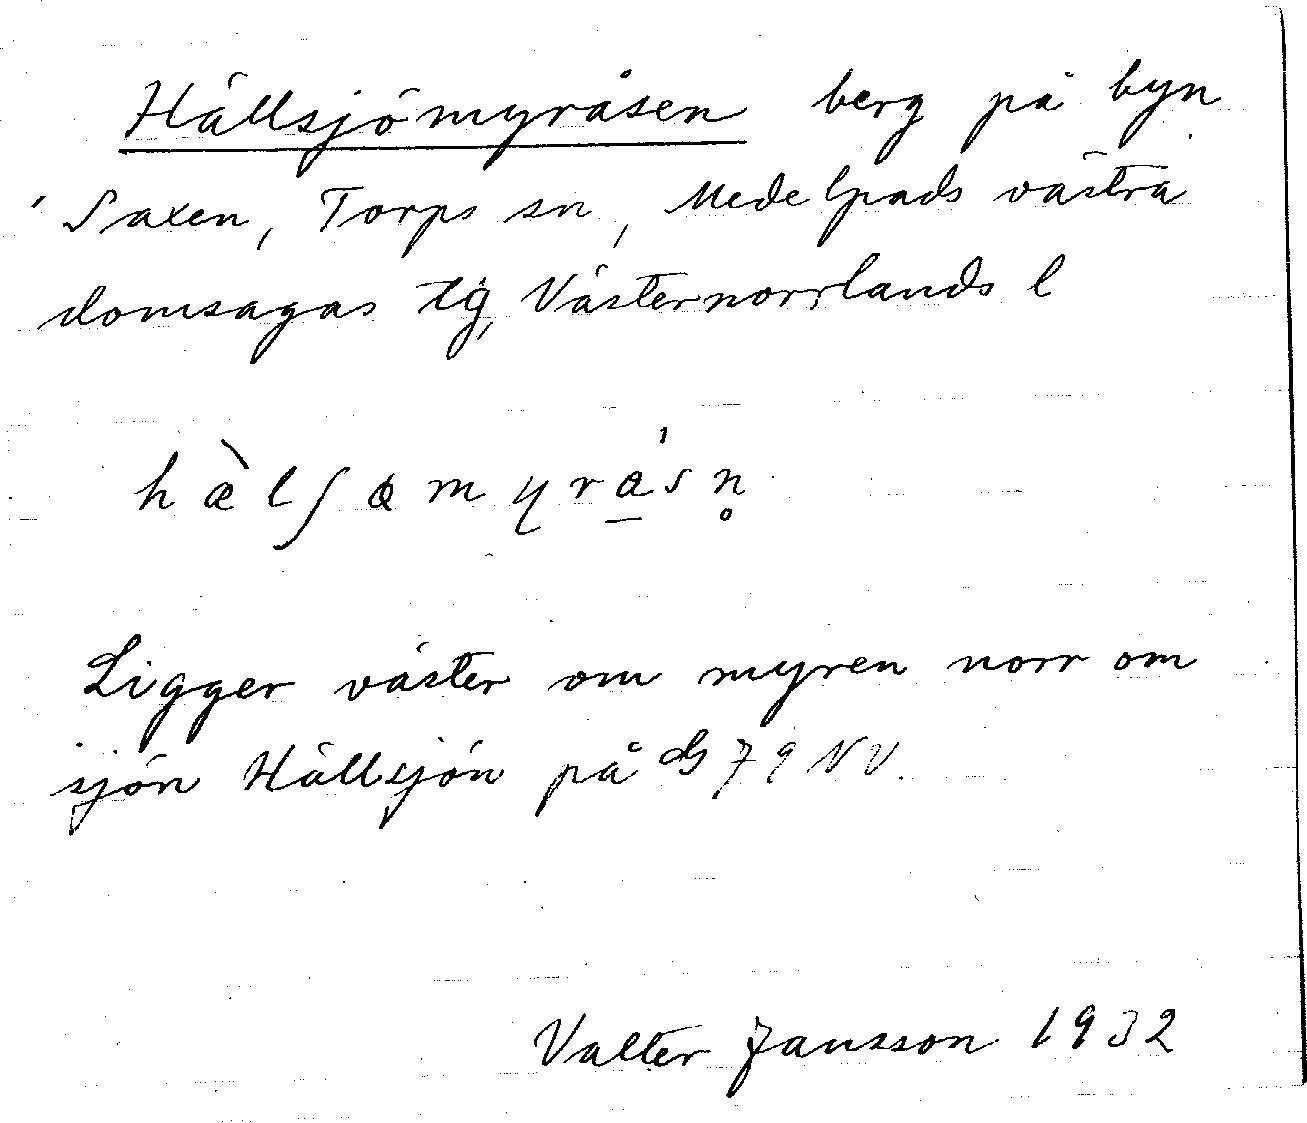 Hällsjömyråsen berg på byn
Saxen, Torps sn, Medelpads västra
domsagas tg, Västernorrlands l
hæ̀lʃɑmyra̱ˊsn̥
Ligger väster om myren norr om
sjön Hällsjön på G 79 NV.
Valter Jansson 1932